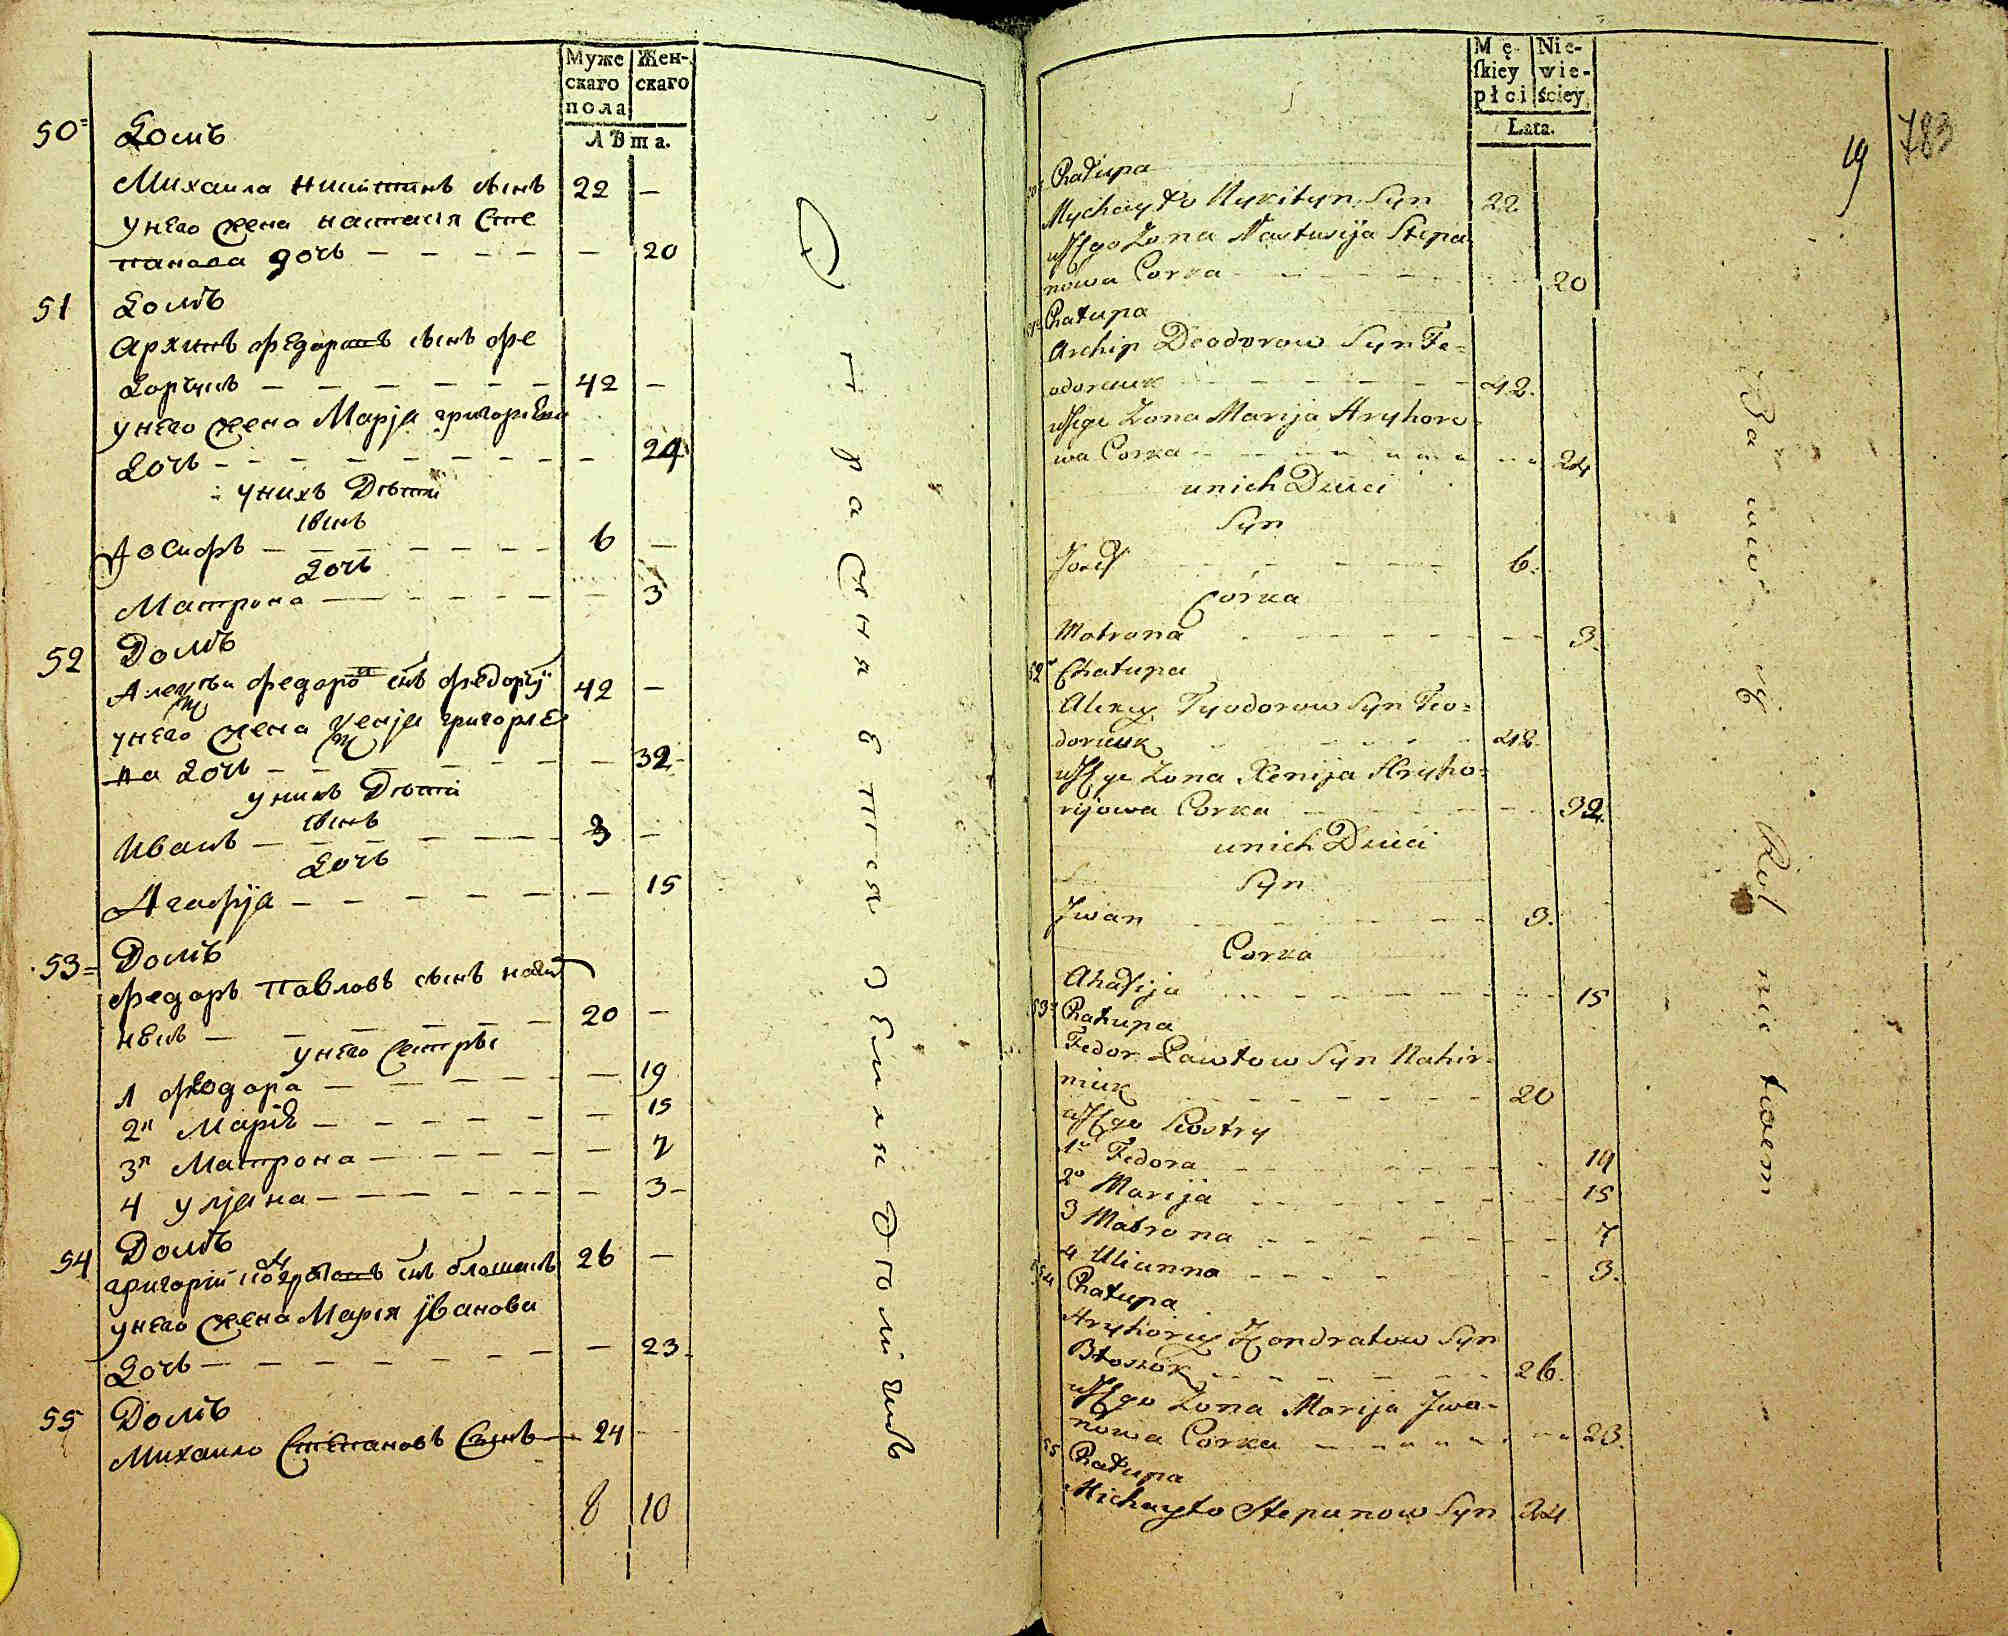 Муже Жен-
скаго скаго
пола
Лѣта.
50 Домъ
Михаила Никитинъ сынъ 22 —
у него жена настасія Сте
панова дочь — — — — — 20
51 Домъ
Архипъ Федоровъ сынъ Фе
дорчукъ — — — — — — 42 —
у него жена Марja григорьева
Дочь — — — — — — — — 24
у нихъ Дѣти
сынъ
Іосифъ — — — — — — 6 —
Дочь
Матрона — — — — — — 3
52 Домъ
Алексѣй Федоровъ снъ Федорчу 42 —
у него жена Ксенja григорѣе
ва Дочь — — — — — — 32
у нихъ Дѣти
сынъ
Иванъ — — — — — — 3 —
Дочь
Агафja — — — — — — 15
53 Домъ
Федоръ Павловъ сынъ нагир
нюкъ — — — — — — 20 —
у него Сестры
1 Федора — — — — — — 19
2я Маріѣ — — — — — — 15
3я Матрона — — — — — — 7
4 Уляна — — — — — — 3
54 Домъ
григорій Кондратовъ снъ блошокъ 26 —
у него жена Марія jванова
Дочь — — — — — — — 23
55 Домъ
Михаило Степановъ Сынъ — 24 —
8 10
Упражняется в земледелїи
Mę- Nie-
ſkiey wie-
płci ściey
Lata.
19 783
50 Chałupa
Mychayło Nykityn Syn 22
u Jego Zona Nastasija Stepa
nowa Corka — — — — — 20
51 Chałupa
Archip Deodorow Syn Fe=
odorczuk — — — — — — 42.
u Jego Zona Marija Hryhoro
wa Corka — — — — — — 24
u nich Dzieci
Syn
Jozef — — — — — — 6.
Córka
Matrona — — — — — — 3.
52 Chałupa
Alexey Fyodorow Syn Feo=
dorczuk — — — — — — 42
u Jego Zona Xenija Hryho=
rijowa Corka — — — — — — 32.
u nich Dzieci
Syn
Jwan — — — — — — 3.
Corka
Ahafija — — — — — — 15
53 Chałupa
Fedor Pawłow Syn Nahir-
niuk — — — — — — 20
u Jego Siostry
1a Fedora — — — — — — 19
2a Marija — — — — — — 15
3 Matrona — — — — — — 7
4 Ulianna — — — — — — 3.
54 Chałupa
Hryhorij Kondratow Syn
Błoszok — — — — — — 26.
u Jego Zona Marija Jwa-
nowa Corka — — — — — — 23.
55 Chałupa
Michayło Stepanow Syn 24
Bawi się Rolnictwem